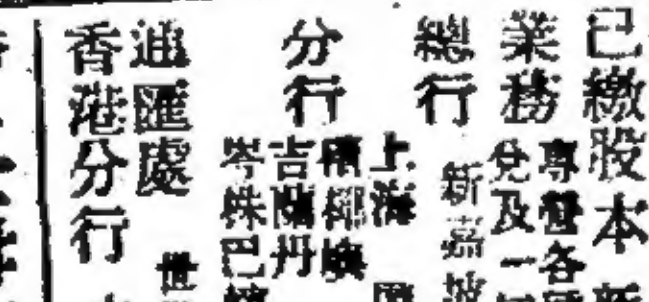 已繳股本新
業務 專營各
兌及一
總行 新嘉坡
分行 上海
檳榔嶼
吉蘭丹
峇株巴
通匯處 世
香港分行